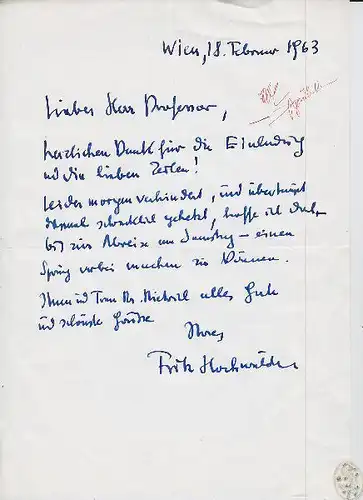 Wien, 18. Februar 1963
Lieber Herr Professor,
herzlichen Dank für die Einladung
und die lieben Zeilen!
Leider morgen verhindert, und überhaupt
diesmal schrecklich gehetzt, hoffe ich doch,
bis zur Abreise am Samstag – einen
Sprung vorbei machen zu können.
Ihnen und Frau Dr. alles Gute
und schönste Grüsse
Ihres
Fritz Hochwälder